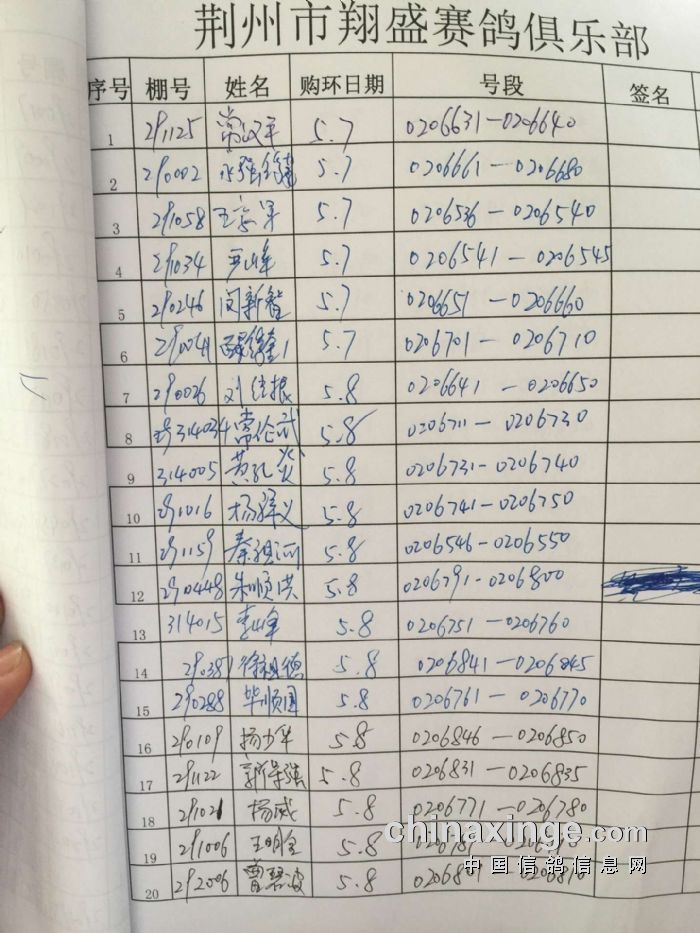 荆州市翔盛赛鸽俱乐部
序号 棚号 姓名 购环日期 号段 签名
1 291125 常汉平 5.7 0206631—0206640
2 290002 5.7 0206661—0206680
3 291058 王宗军 5.7 0206536—0206540
4 291034 5.7 0206541—0206545
5 290246 闵新智 5.7 0206651—0206660
6 5.7 0206701—0206710
7 290026 刘继振 5.8 0206641—0206650
8 314034 常伦武 5.8 0206711—0206730
9 314005 5.8 0206731-0206740
10 291016 5.8 0206741-0206750
11 291159 秦祖河 5.8 0206546-0206550
12 290448 朱顺洪 5.8 0206791-0206800
13 314015 李峰 5.8 0206751-0206760
14 290387 徐祖德 5.8 0206841-0206845
15 290288 毕顺国 5.8 0206761-0206770
16 290109 杨少华 5.8 0206846-0206850
17 291122 5.8 0206831-0206835
18 291021 杨威 5.8 0206771-0206780
19 291006 王明全 5.8
20 292006 曹碧波 5.8
chinaxinge.com
中国信鸽信息网